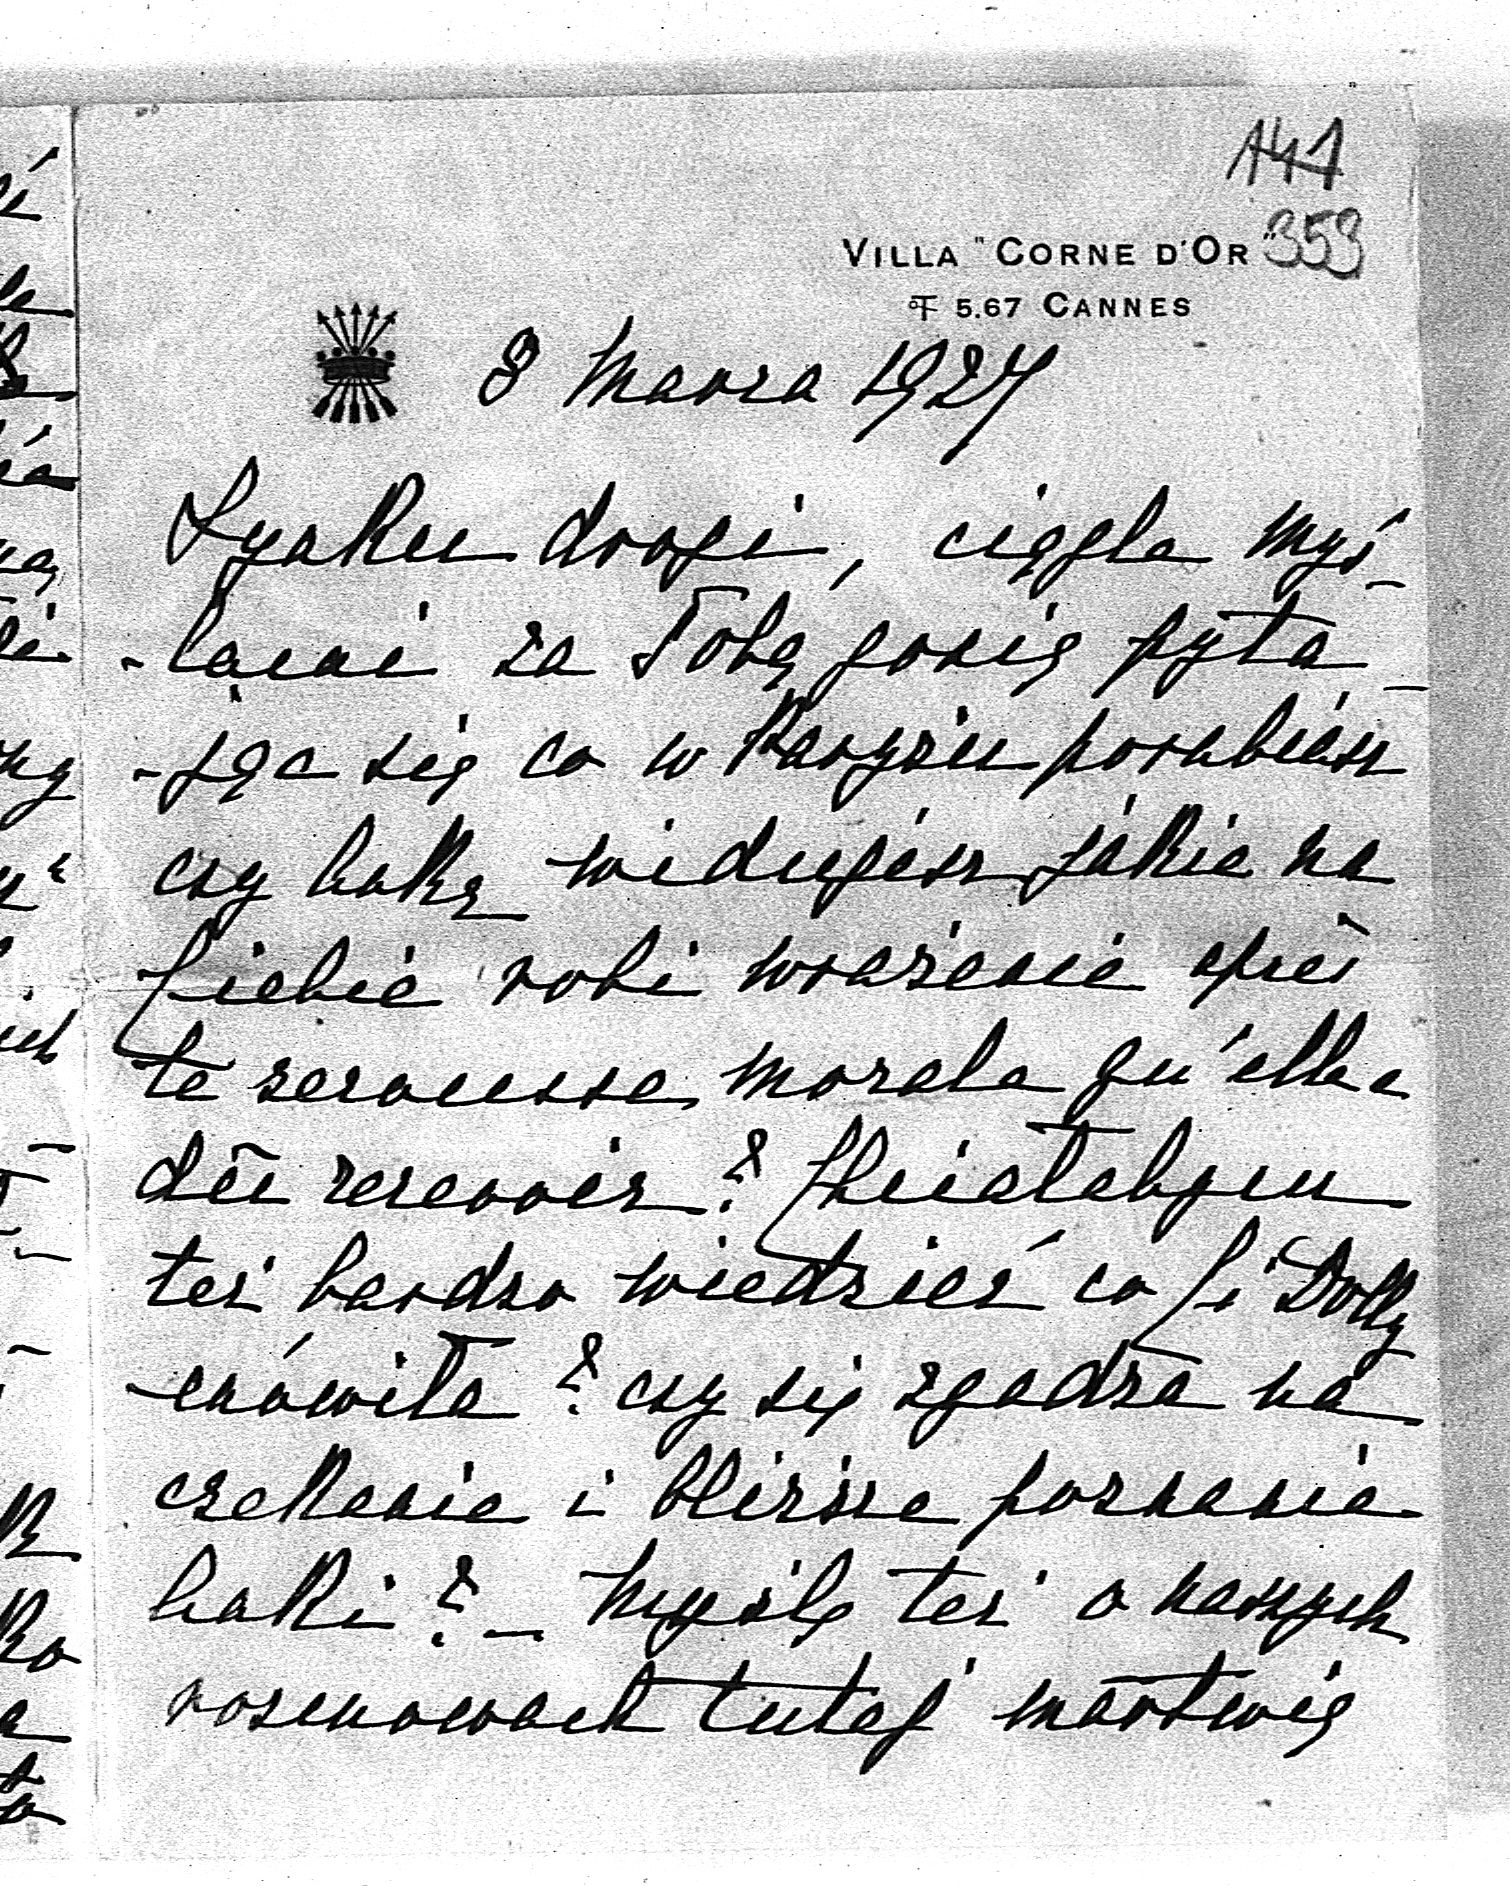 141
353
VILLA "CORNE D'OR"
T 5.67 CANNES
8 Marca 1927
drogi, ciągle myś-
-lami za Tobą gonię pyta-
-jąc się co w Paryżu porabiasz
czy Lolkę widujesz jakie na
Ciebie robi wrażenie après
te secousse morale qu'elle a
dû recevoir? Chciałabym
też bardzo wiedzieć co Ci Dolly
mówiła? czy się zgadza na
czekanie i bliższe poznanie
Lolki? – Myślę też o naszych
rozmowach tutaj martwię